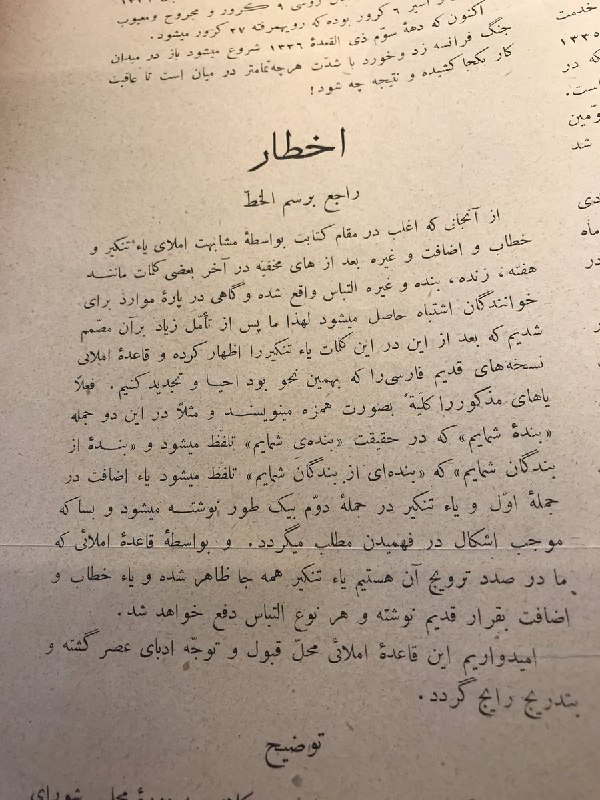 اسیر ۶ کرور بوده که رویهمرفته ۲۷ کرور میشود.
اکنون که دههٔ سوّم ذی القعدهٔ ۱۳۳۶ شروع میشود باز در میدان
جنگ فرانسه زد و خورد با شدّت هرچه‌تمامتر در میان است تا عاقبت
کار بکجا کشیده و نتیجه چه شود!
اخطار
راجع برسم الخطّ
از آنجائی که اغلب در مقام کتابت بواسطهٔ مشابهت املای یاء تنکیر و
خطاب و اضافت و غیره بعد از های مخفیّه در آخر بعضی کلمات ماننـد
هفته، زنده، بنده و غیره التباس واقع شده و گاهی در پارهٔ موارد برای
خوانندگان اشتباه حاصل میشود لهذا ما پس از تأمّل زیاد برآن مصمّم
شدیم که بعد از این در این کلمات یاء تنکیر را اظهار کرده و قاعدهٔ املائی
نسخه‌های قدیم فارسی را که بهمین نحو بود احیا و تجدید کنیم. فعلاً
یاهای مذکور را کلیةً بصورت همزه مینویسنـد و مثلاً در این دو جمله
«بندهٔ شمایم» که در حقیقت «بنده‌ی شمایم» تلفظ میشود و «بنـدهٔ از
بندگان شمایم» که «بنده‌ای از بندگان شمایم» تلفظ میشود یاء اضافت در
جملهٔ اوّل و یاء تنکیر در جملهٔ دوّم بیک طور نوشتـه میشود و بسا که
موجب اشکال در فهمیدن مطلب میگردد. و بواسطهٔ قاعدهٔ املائی که
ما در صدد ترویج آن هستیم یاء تنکیر همه جا ظاهر شده و یاء خطاب و
اضافت بقرار قدیم نوشته و هر نوع التباس دفع خواهد شد.
امیدواریم این قاعدهٔ املائی محلّ قبول و توجّه ادبای عصر گشته و
بتدریج رایج گردد.
توضیح
خدمت
که در
است.
شد
ماه
در